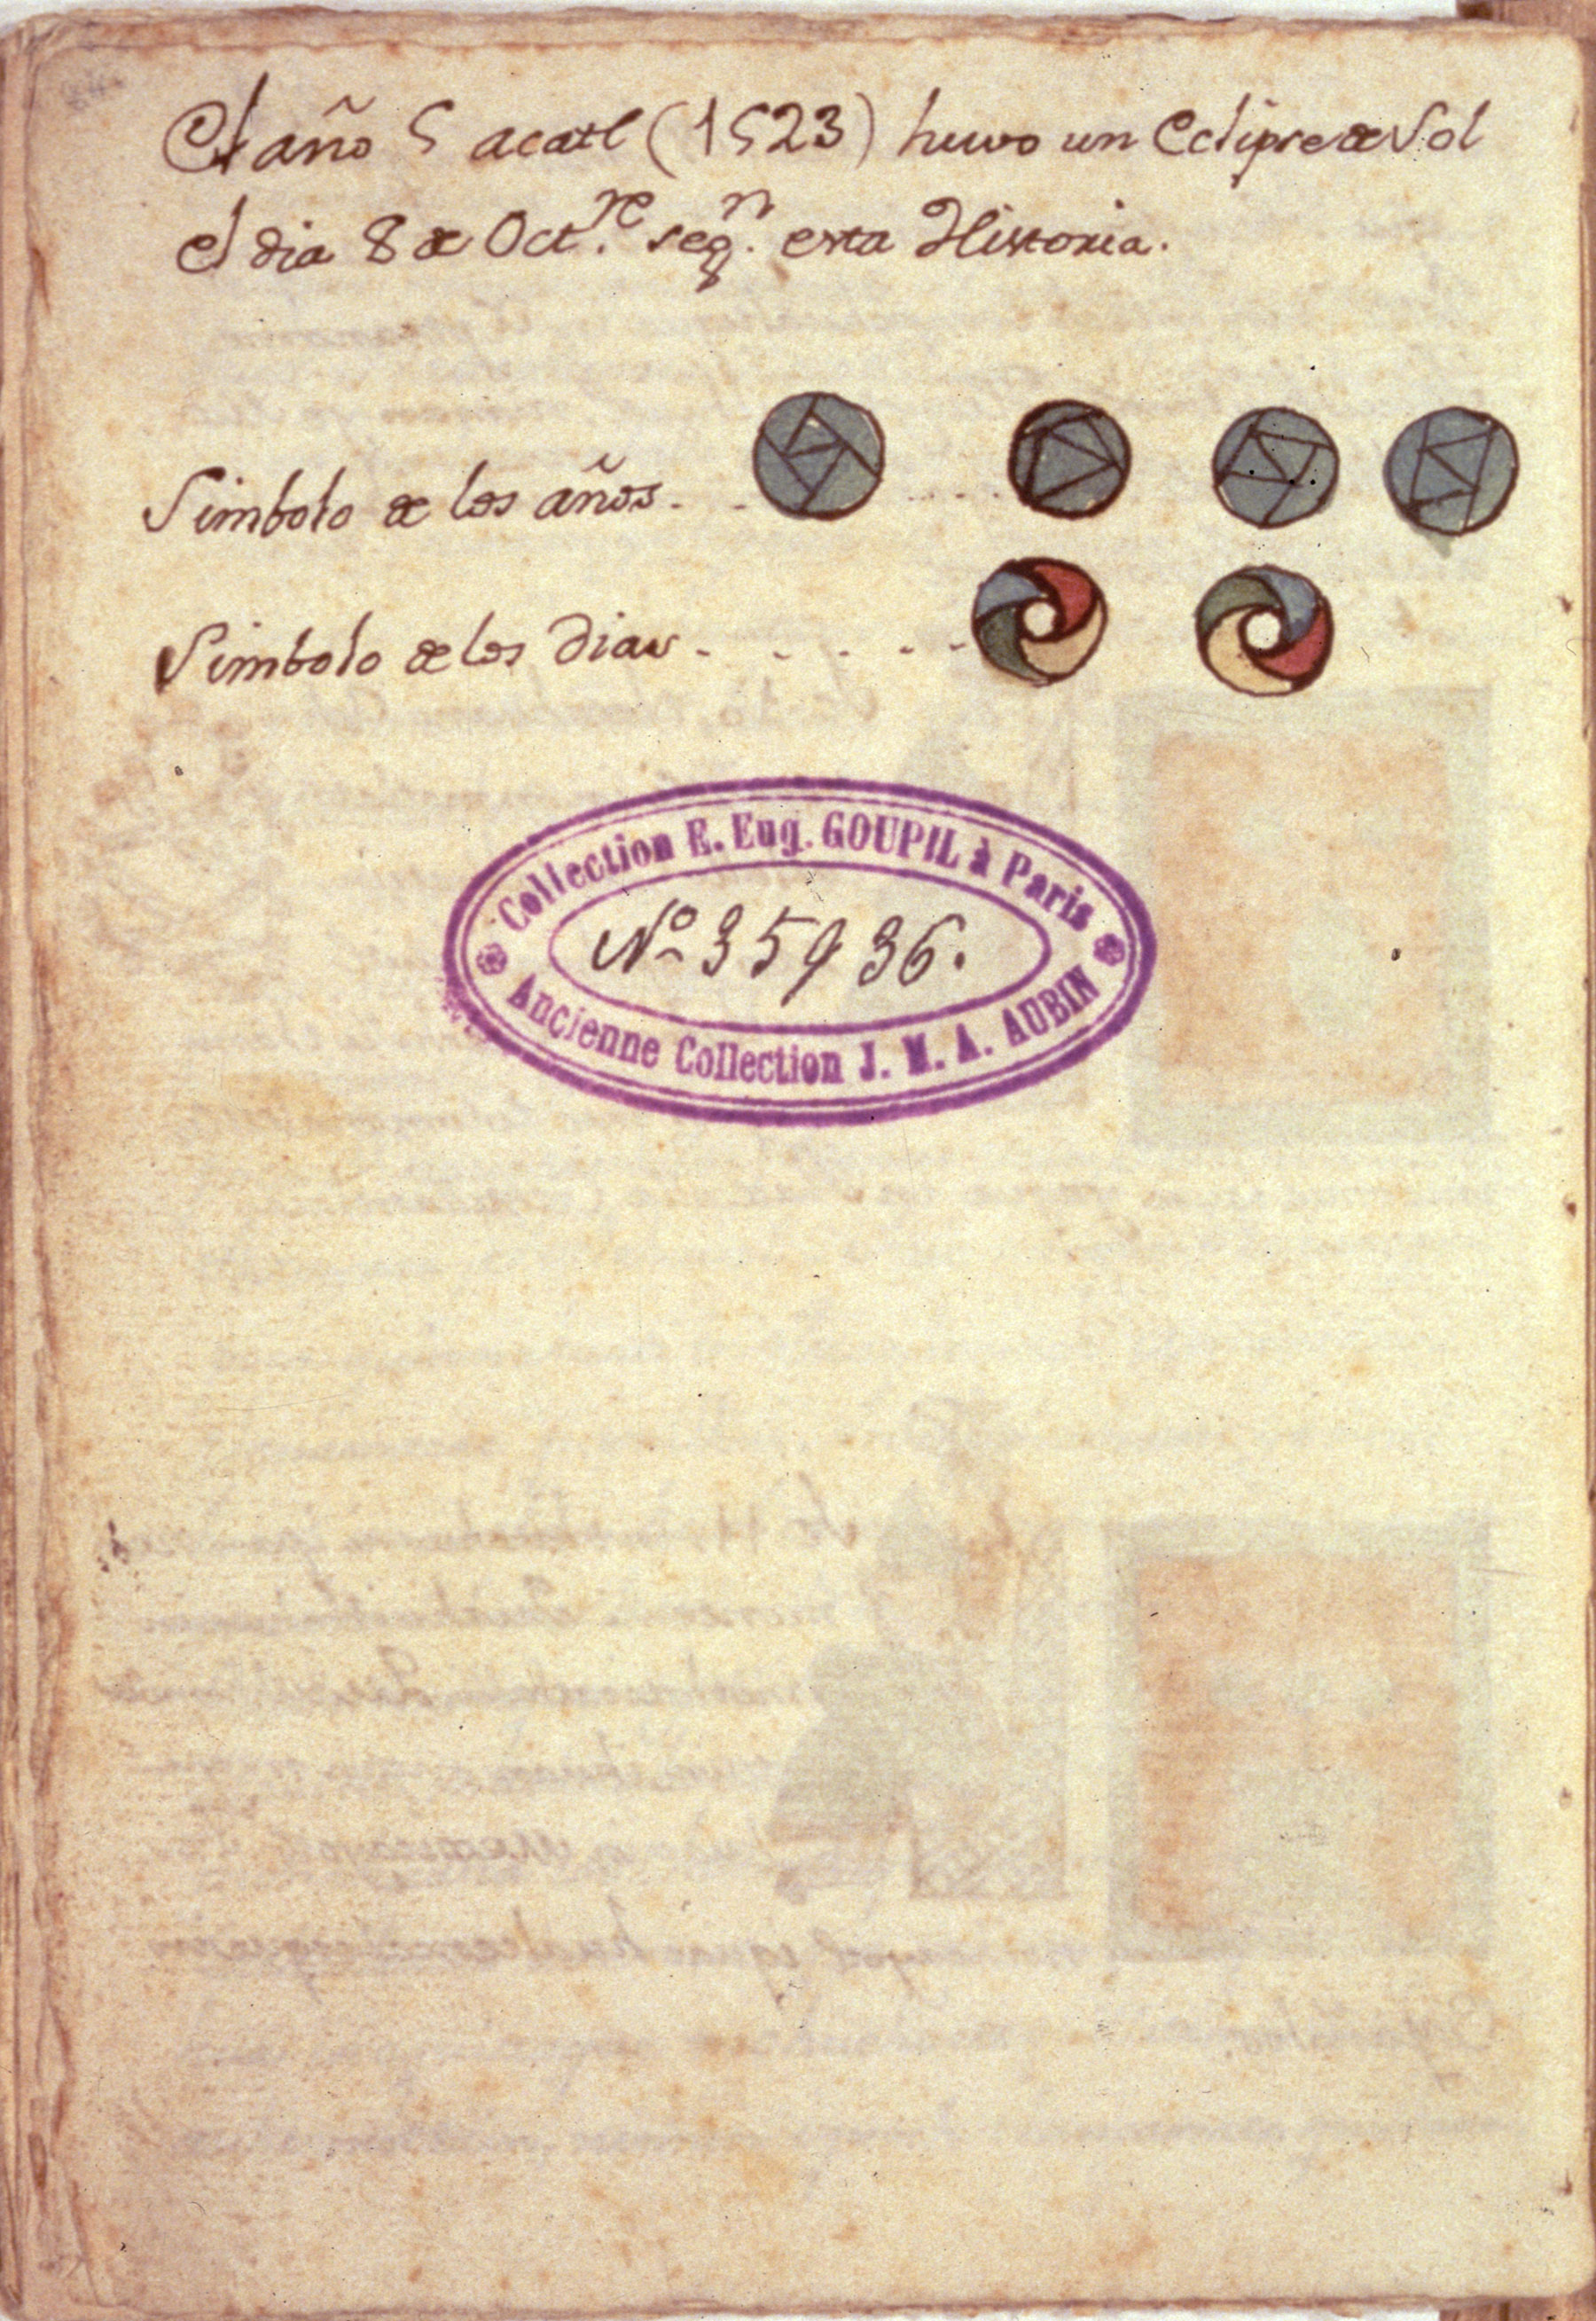 El año 5 acatl (1523) huvo un Eclipse de Sol
el dia 8 de Oct.re seg.n esta Historia.
Simbolo de los años. . . . . .
Simbolo de los dias . . . . . .
Collection E. Eug. GOUPIL à Paris
Nº 35936.
Ancienne Collection J. M. A. AUBIN